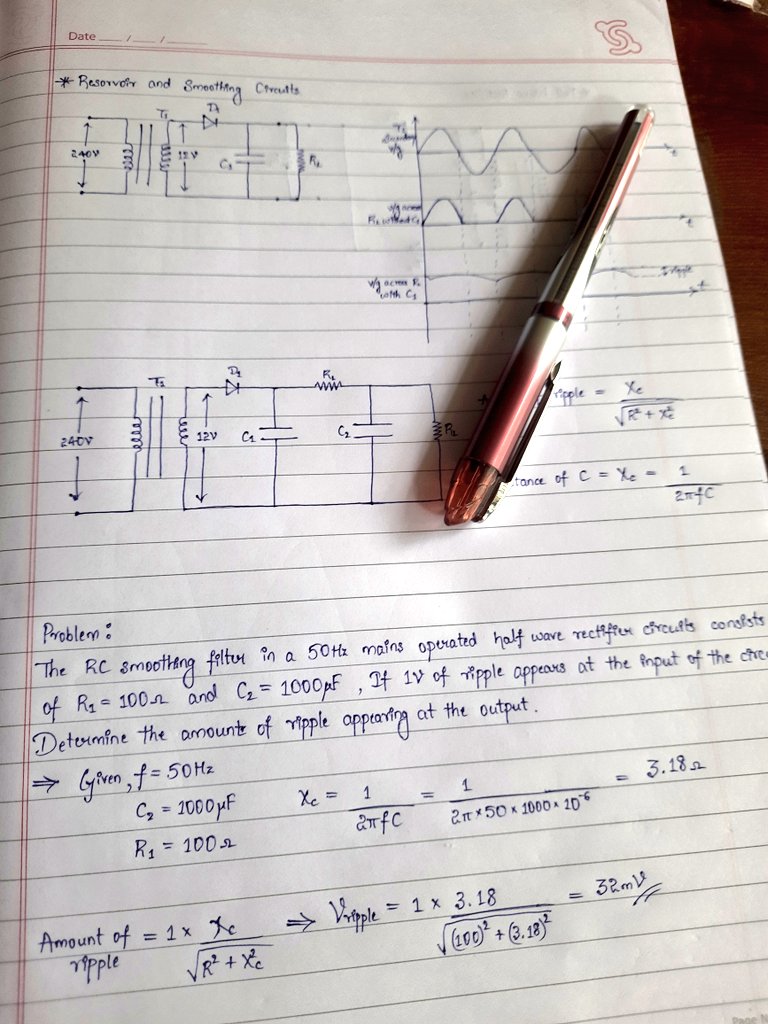 Date __/__/____
* Reservoir and Smoothing Circuits
T1 D1
240V 12V C1 RL
T1
Secondary
v/g
t
v/g across
RL without C1
t
v/g across RL
with C1
ripple
t
T1 D1 R1
240V 12V C1 C2 RL
ripple = Xc / √R² + Xc²
tance of C = Xc = 1 / 2πfC
Problem:
The RC smoothing filter in a 50Hz mains operated half wave rectifier circuits consists
of R1 = 100Ω and C2 = 1000µF, If 1V of ripple appears at the input of the
Determine the amount of ripple appearing at the output.
⇒ Given, f = 50Hz
C2 = 1000µF Xc = 1 / 2πfC = 1 / 2π×50×1000×10⁻⁶ = 3.18Ω
R1 = 100Ω
Amount of ripple = 1 × Xc / √R² + Xc² ⇒ Vripple = 1 × 3.18 / √(100)² + (3.18)² = 32mV